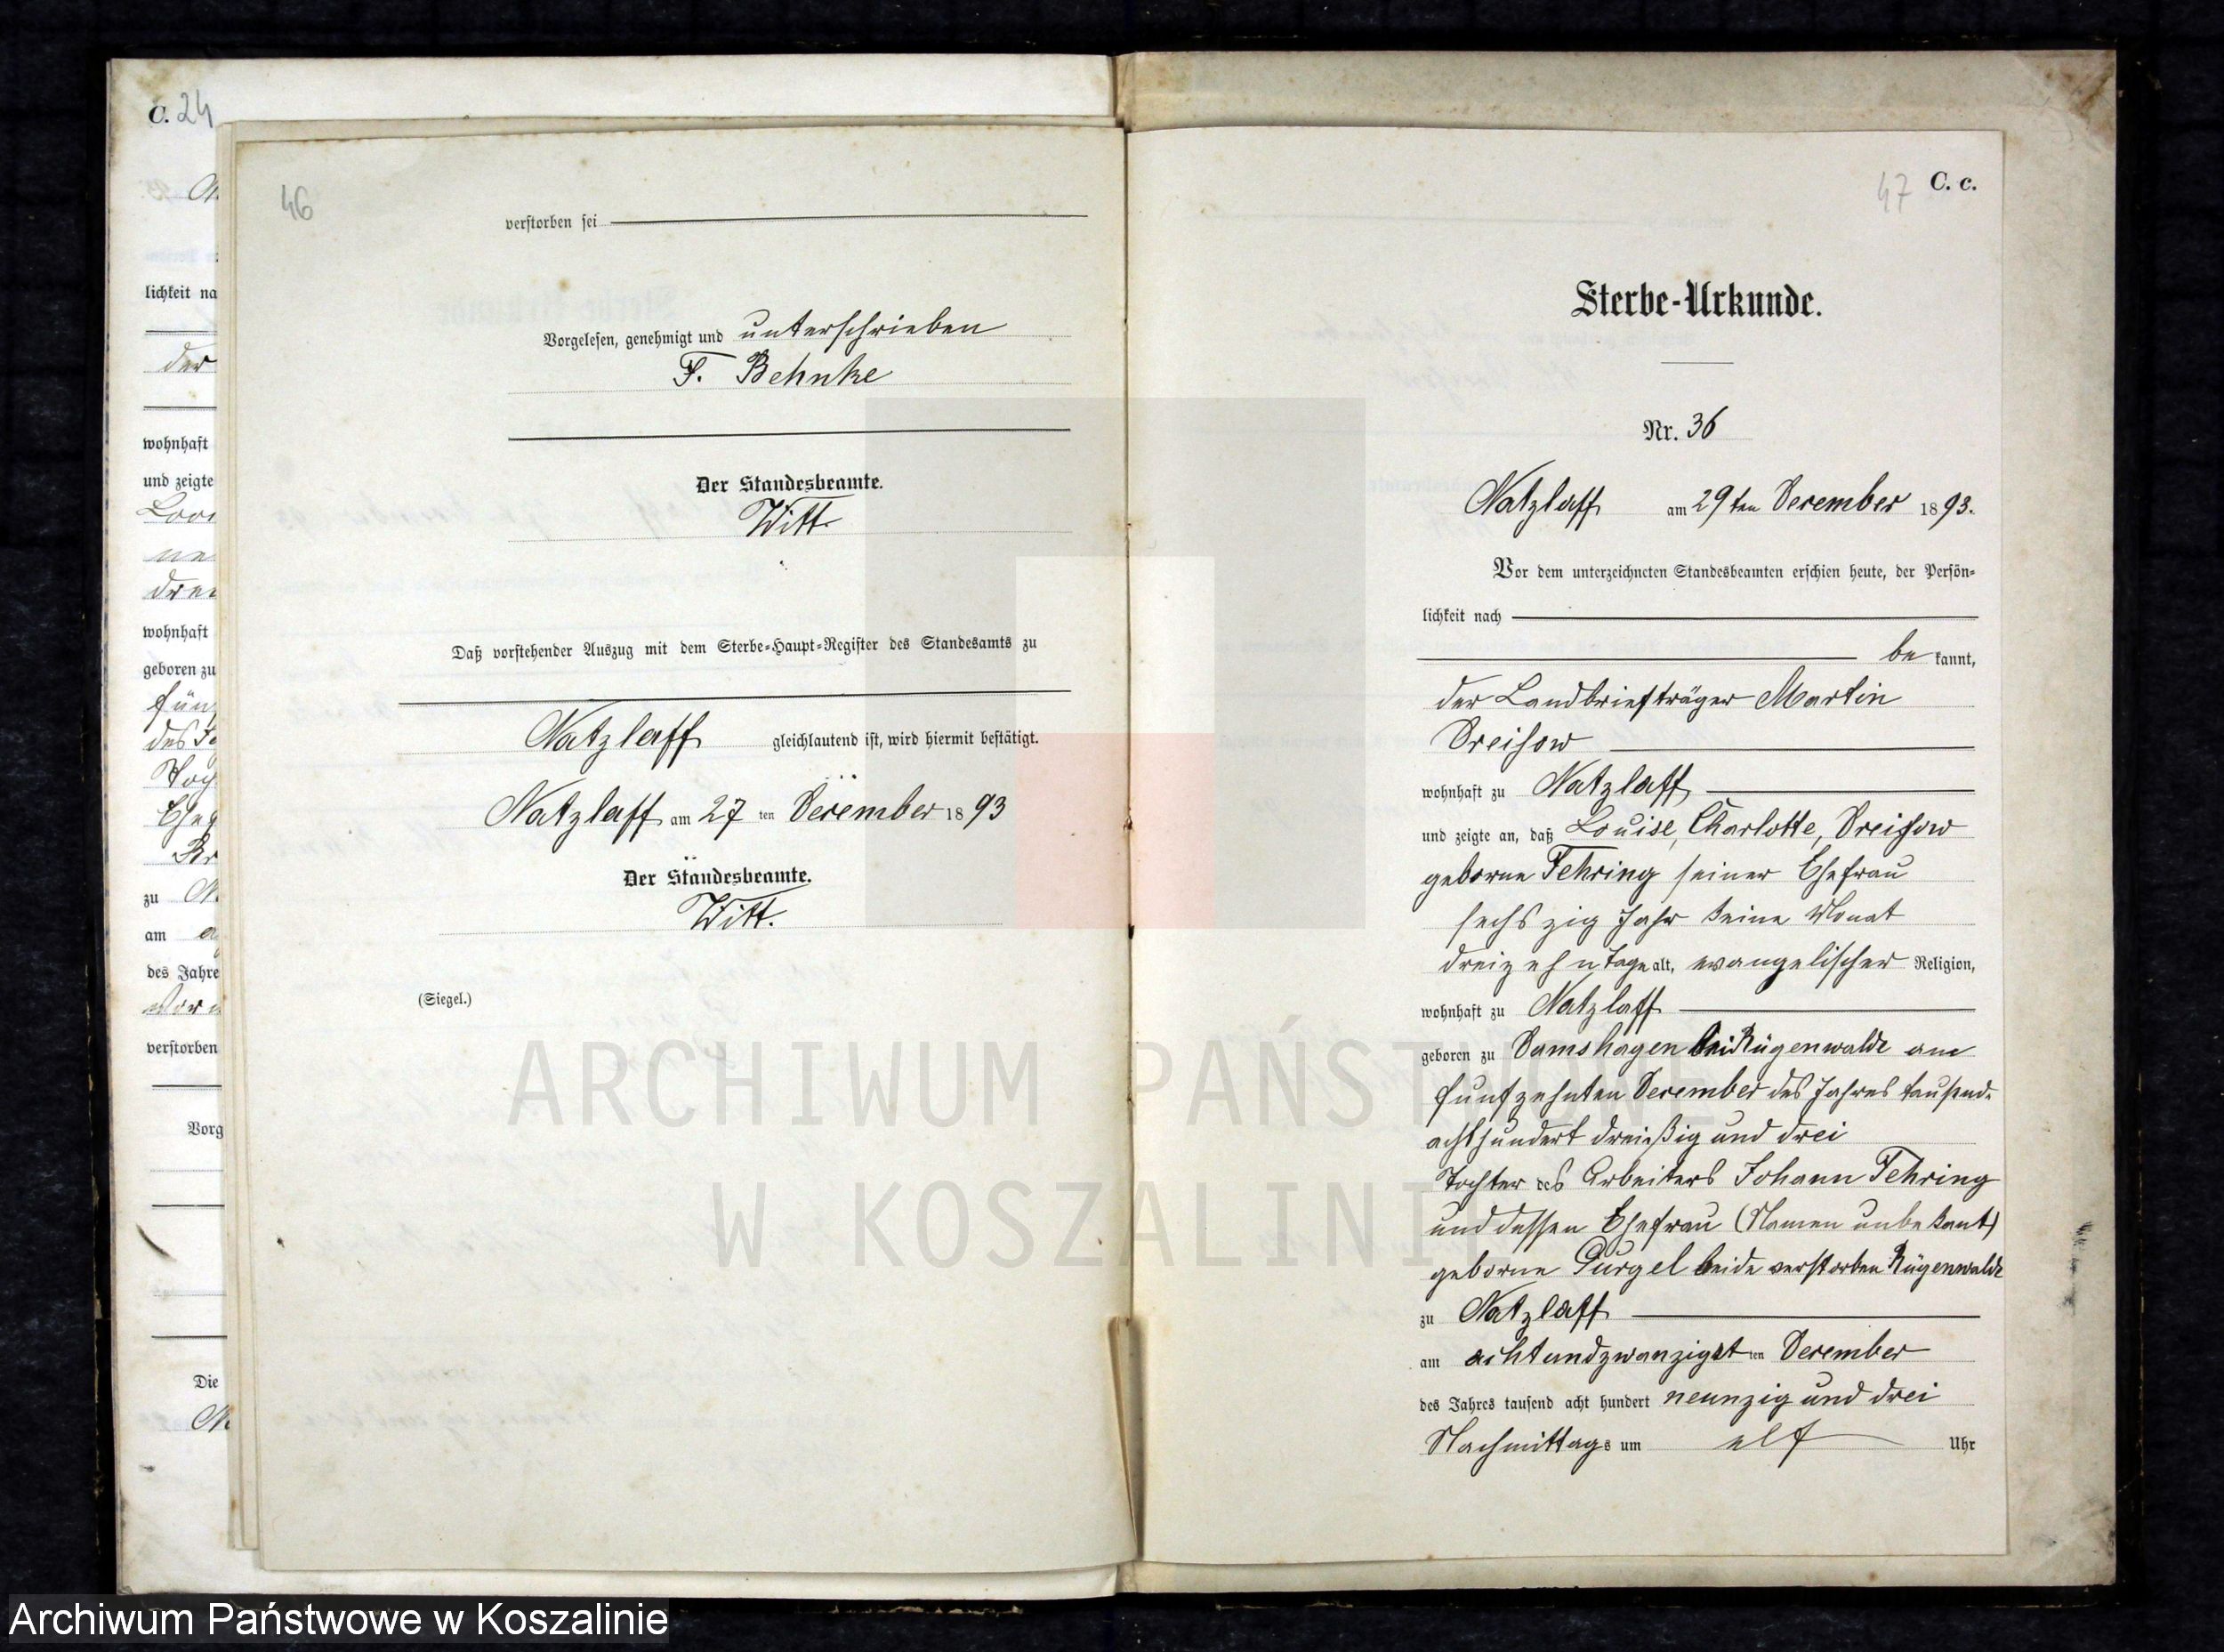 C. 24
lichkeit na
der
wohnhaft
und zeigte
wohnhaft
geboren zu
des
zu
am
des Jahre
verstorben
Vorg
Die
46
verstorben sei
Vorgelesen, genehmigt und unterschrieben
F. Behnke
Der Standesbeamte.
Witt
Daß vorstehender Auszug mit dem Sterbe-Haupt-Register des Standesamts zu
Natzlaff gleichlautend ist, wird hiermit bestätigt.
Natzlaff am 27 ten December 1893
Der Standesbeamte.
Witt.
(Siegel.)
47 C. c.
Sterbe-Urkunde.
Nr. 36
Natzlaff am 29ten December 1893.
Vor dem unterzeichneten Standesbeamten erschien heute, der Persön-
lichkeit nach
be kannt,
der Landbriefträger Martin
Dreisow
wohnhaft zu Natzlaff
und zeigte an, daß Louise, Charlotte, Dreisow
geborne Fehring seiner Ehefrau
sechszig Jahr keine Monat
dreizehn Tage alt, evangelischer Religion,
wohnhaft zu Natzlaff
geboren zu Damshagen bei Rügenwalde am
funfzehnten December des Jahres tausend-
achthundert dreißig und drei
Tochter des Arbeiters Johann Fehring
und dessen Ehefrau (Namen unbekant)
geborne Purgel beide verstorben Rügenwalde
zu Natzlaff
am achtundzwanzigst ten December
des Jahres tausend acht hundert neunzig und drei
Nachmittags um elf Uhr
ARCHIWUM PAŃSTWOWE
W KOSZALINIE
Archiwum Państwowe w Koszalinie